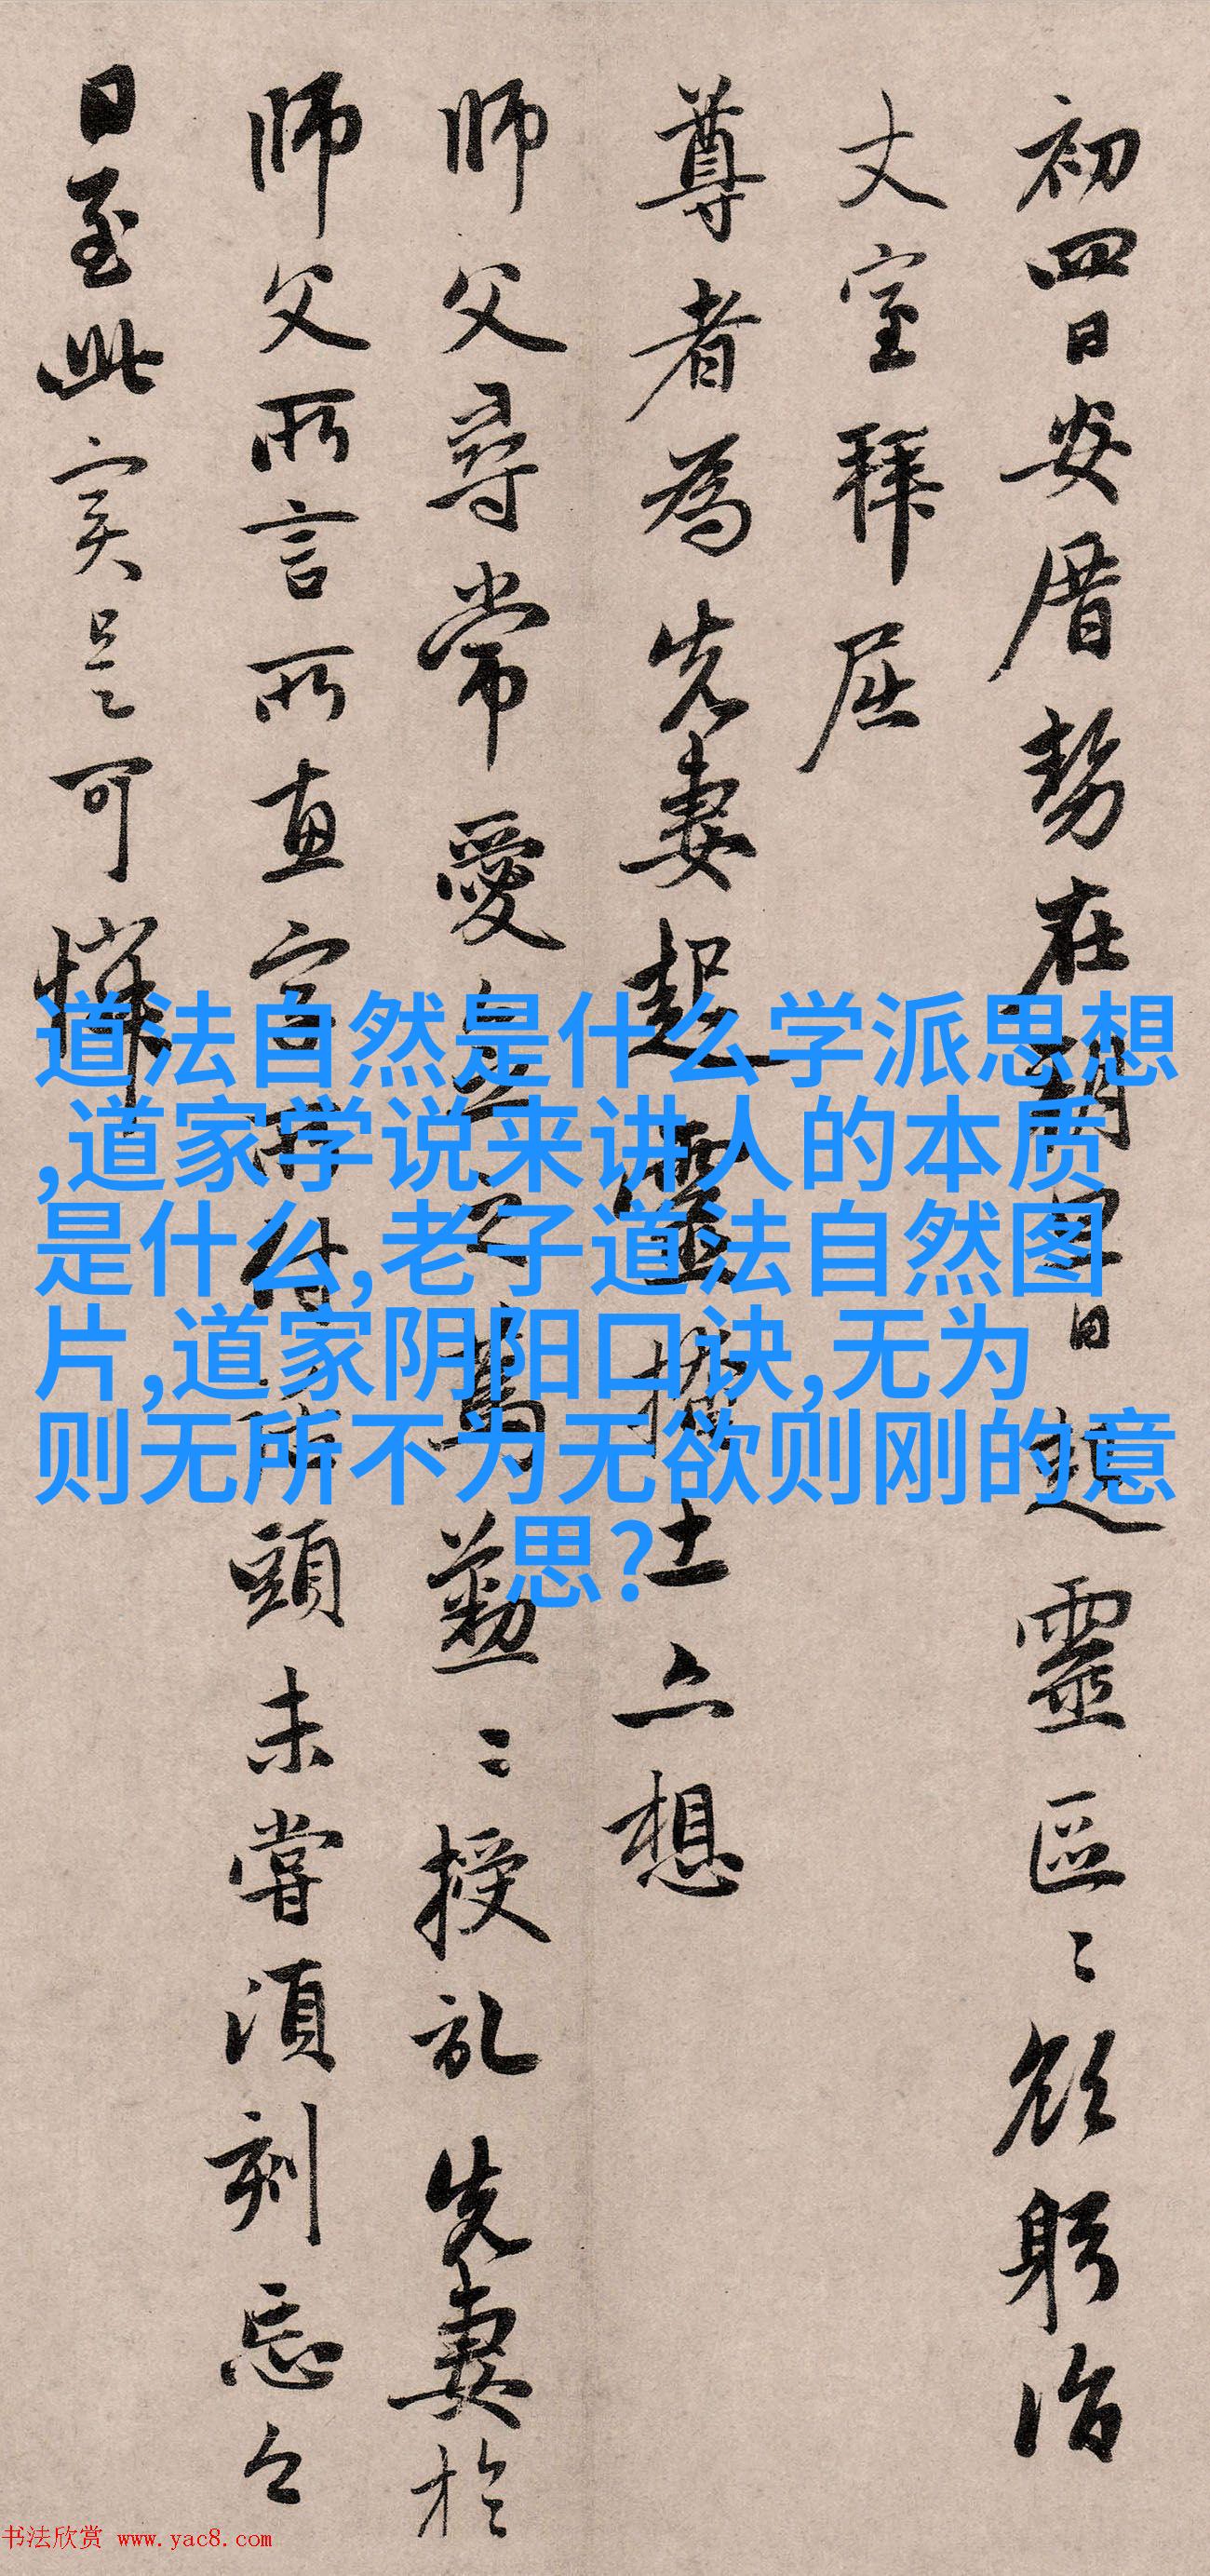 初四日安厝勢在日起靈區〻欲躬詣
丈室拜屈
尊者為先妻起靈土想
師父尋常愛之篤勤〻授記先妻於
師父所言所惠字所付頭未嘗須刻忘之
日至此实是可憐
道法自然是什么学派思想
,道家学说来讲人的本质
是什么,老子道法自然图
片,道家阴阳口诀,无为
则无所不为无欲则刚的意
思?
书法欣赏 www.yac8.com